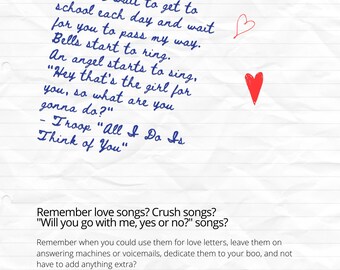 wait to get to
school each day and wait
for you to pass my way.
Bells start to ring.
An angel starts to sing,
"Hey that's the girl for
you, so what are you
gonna do?"
- Troop "All I Do Is
Think of You"
Remember love songs? Crush songs?
"Will you go with me, yes or no?" songs?
Remember when you could use them for love letters, leave them on
answering machines or voicemails, dedicate them to your boo, and not
have to add anything extra?